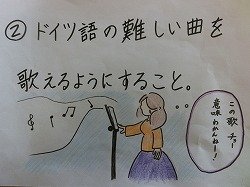 ② ドイツ語の難しい曲を
歌えるようにすること。
この歌
意味わかんねー!